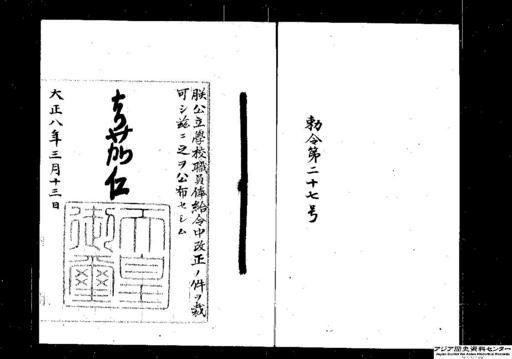 勅令第二十七号
朕公立學校職員俸給令中改正ノ件ヲ裁
可シ茲ニ之ヲ公布セシム
嘉仁
天皇
御璽
大正八年三月十三日
アジア歴史資料センター
Japan Center for Asian Historical Records